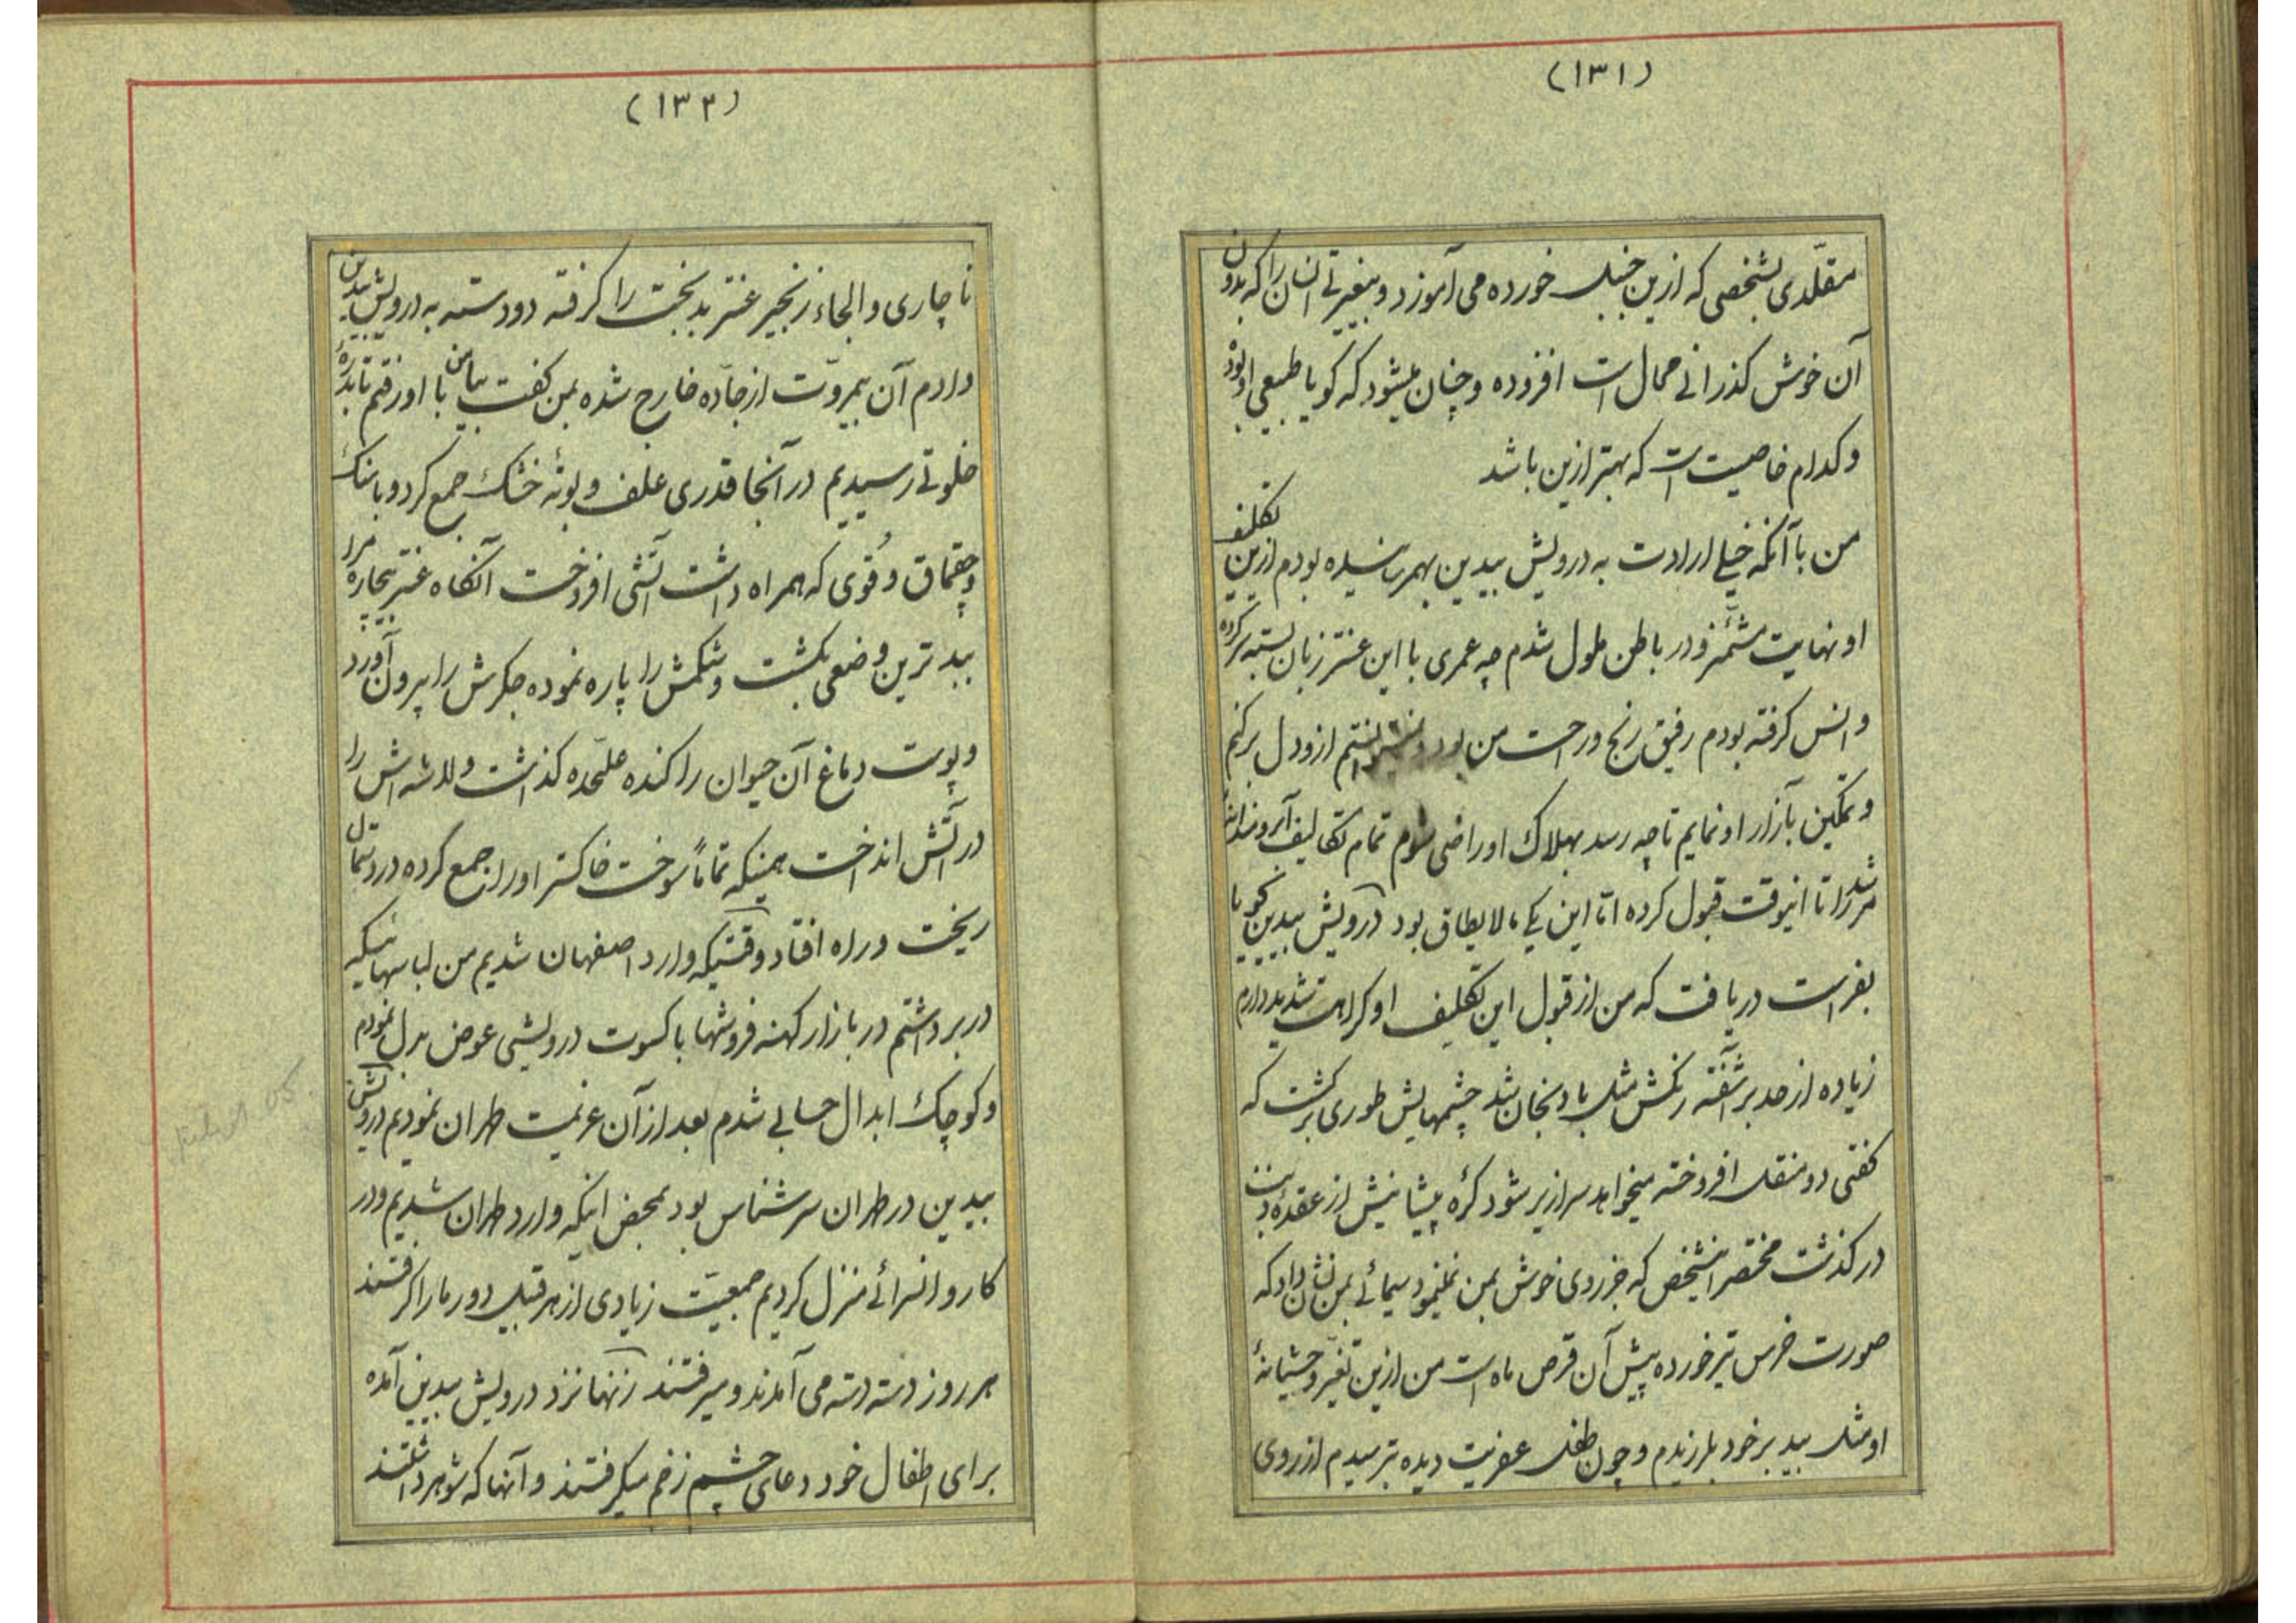 (۱۳۱)
مقلّدی بشخصی که ازین جنبک خورده می آموزد و بیغیرتی انسان را که بدون
آن خوش گذرانی محال است افزوده و چنان میشود که کویا طبیعی او بود
و کدام خاصیت است که بهتر ازین باشد
من با آنکه خیلی ارادت به درویش بیدین بهم رسانیده بودم ازین تکلیف
او نهایت مشمئز و در باطن ملول شدم چه عمری با این عنتر زبان بسته سر کرده
و انس کرفته بودم رفیق رنج و راحت من بود و نمیتوانستم ازو دل برکنم
و تمکین بآزار او نمایم تا چه رسد بهلاک او راضی شوم تمام تکالیف
مرشد را تا اینوقت قبول کرده امّا این یکی مالایطاق بود درویش بیدین کویا
بفراست دریافت که من از قبول این تکلیف او کراهت شدید دارم
زیاده از حد برآشفته رنکش مثل بادنجان شد چشمهایش طوری برکشت که
کفتی دو منقل افروخته میخواهد سرازیر شود کرهٔ پیشانیش از عقدهٔ ذنب
درکذشت مختصر اینشخص که جز روی خوش بمن نمینمود سیمائی بمن نشان داد که
صورت خرس تیر خورده پیش آن قرص ماه است من ازین تغیّر وحشیانهٔ
او مثل بید بر خود بلرزیدم و چون طفل عفریت دیده بترسیدم از روی
(۱۳۲)
ناچاری و الجاء زنجیر عنتر بدبخت را کرفته دو دسته به درویش بیدین
دادم آن بیمروّت از جادّه خارج شده بمن کفت بیا من با او رفتم تا بدرّهٔ
خلوتی رسیدیم در آنجا قدری علف و بوتهٔ خشک جمع کرد و با سنک
و چقماق و قُوی که همراه داشت آتشی افروخت آنکاه عنتر بیچاره مرا
ببدترین وضعی بکشت و شکمش را پاره نموده جکرش را بیرون آورد
و پوست دماغ آن حیوان را کنده علیحده کذاشت و لاشه اش را
در آتش انداخت همینکه تماماً سوخت خاکستر او را جمع کرده در دستمال
ریخت و راه افتاد وقتیکه وارد اصفهان شدیم من لباسهائیکه
در بر داشتم در بازار کهنه فروشها با کسوت درویشی عوض بدل نمودم
و کوچک ابدال حسابی شدم بعد از آن عزیمت طهران نمودیم درویش
بیدین در طهران سرشناس بود بمحض اینکه وارد طهران شدیم و در
کاروانسرائی منزل کردیم جمعیّت زیادی از هر قبیل دور ما را کرفتند
هر روز دسته دسته می آمدند و میرفتند زنها نزد درویش بیدین آمده
برای اطفال خود دعای چشم زخم میکرفتند و آنها که شوهر داشتند